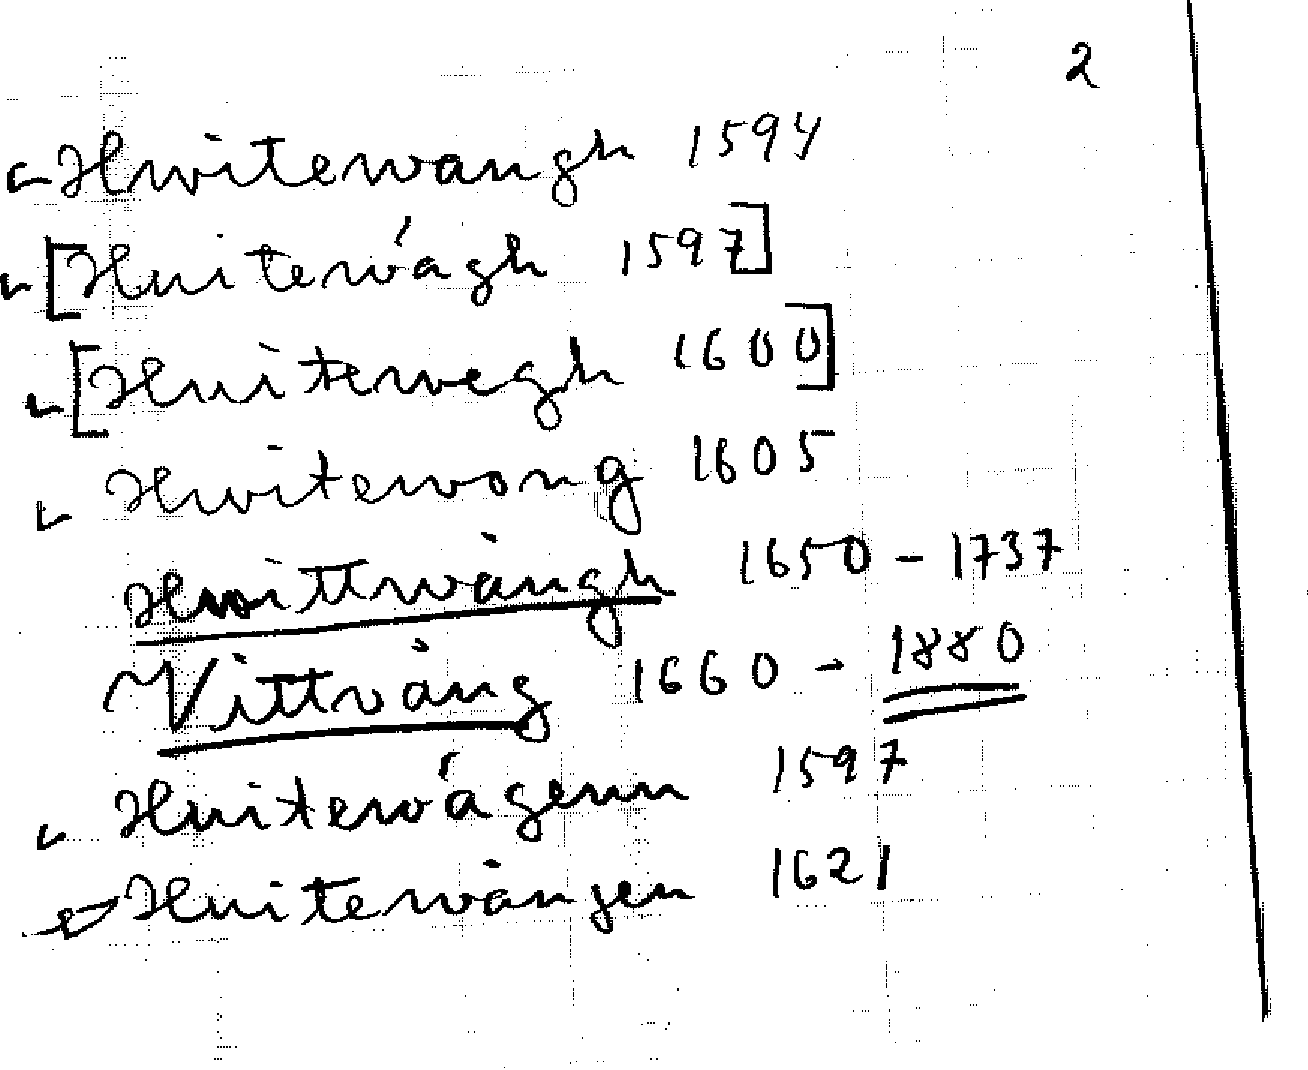 2
Hwitewangh 1594
[Huitewágh 1597]
[Huitewegh 1600]
Hwitewong 1605
Hwittwångh 1650 - 1737
Vittvång 1660 - 1880
Huitewágenn 1597
Huitewången 1621